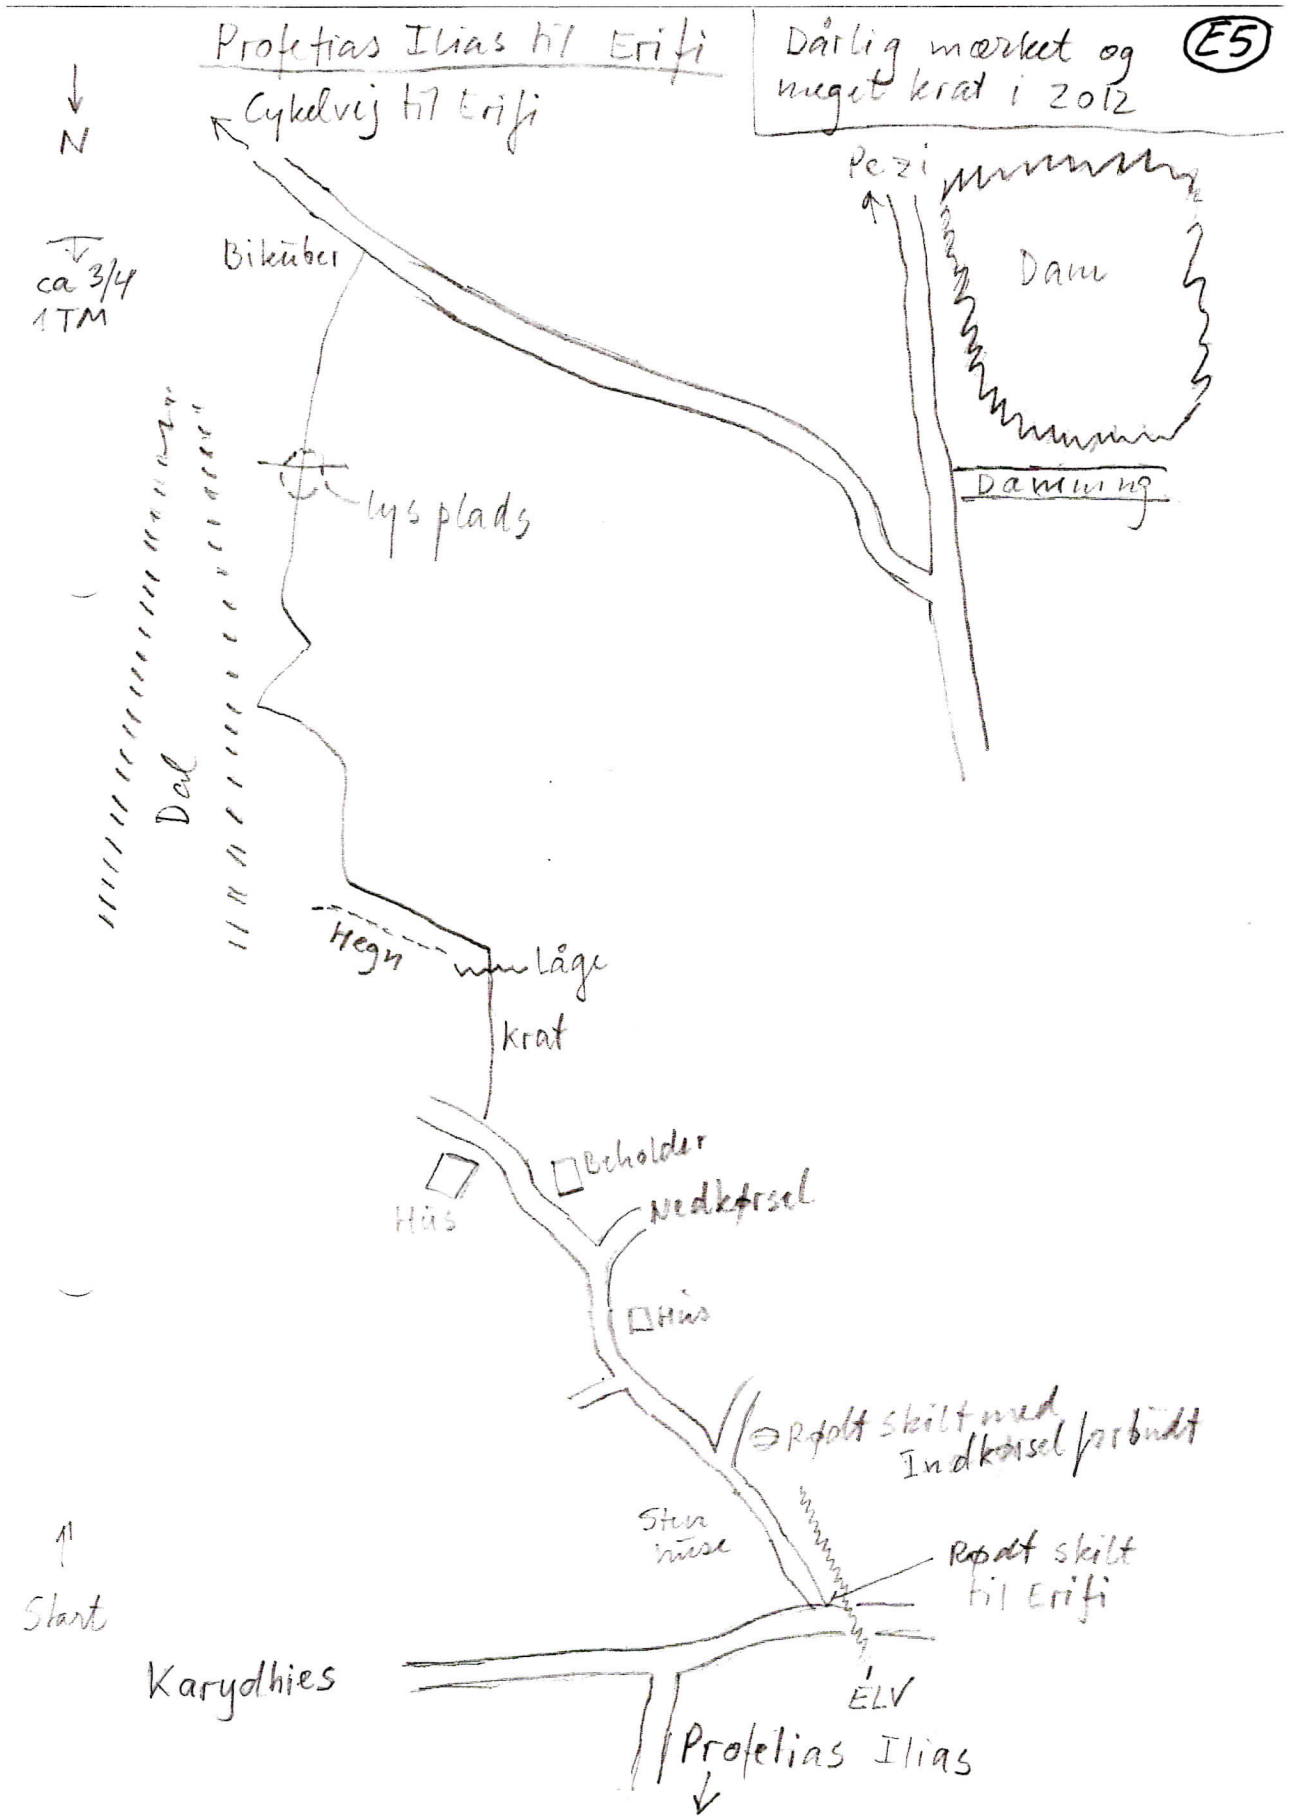 Profetias Ilias til Erifi
Dårlig mærket og
meget krat i 2012
E5
Cykelvej til Erifi
N
Pezi
Biküber
ca 3/4
1 TM
Dam
Damning
lys plads
Dal
Hegn
Låge
krat
Beholder
Nedkørsel
Hüs
Hüs
Rødt skilt med
Indkørsel forbüdt
Sten
hüse
Rødt skilt
til Erifi
Start
Karydhies
ELV
Profetias Ilias